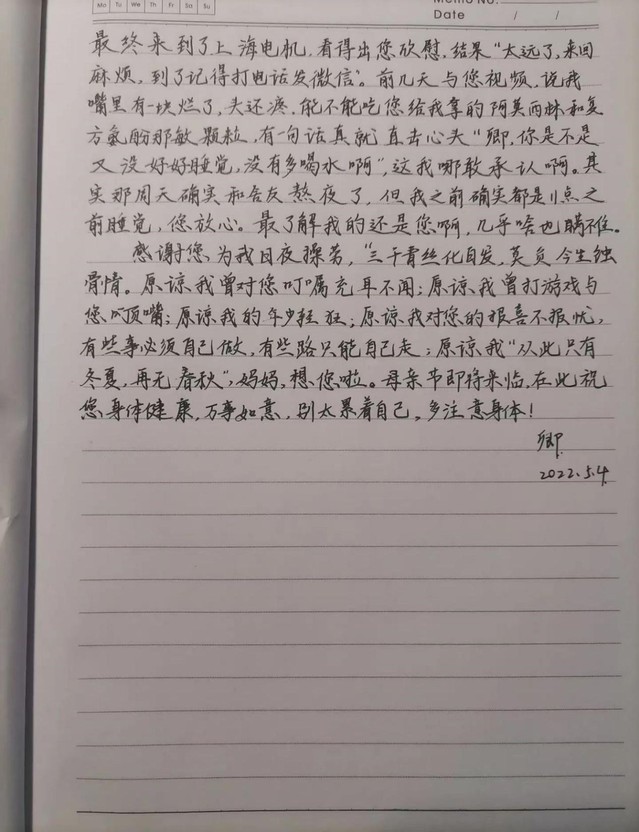 Mo Tu We Th Fr Sa Su
Memo No.
Date / /
最终来到了上海电机,看得出您欣慰,结果“太远了,来回
麻烦,到了记得打电话发微信”。前几天与您视频,说我
嘴里有一块烂了,头还疼,能不能吃您给我拿的阿莫西林和复
方氨酚那敏颗粒,有一句话真就直击心头“卿,你是不是
又没好好睡觉,没有多喝水啊”,这我哪敢承认啊。其
实那周天确实和舍友熬夜了,但我之前确实都是11点之
前睡觉,您放心。最了解我的还是您啊,几乎啥也瞒不住。
感谢您为我日夜操劳,“三千青丝化白发,莫负今生蚀
骨情。原谅我曾对您叮嘱充耳不闻;原谅我曾打游戏与
您顶嘴;原谅我的年少轻狂;原谅我对您的报喜不报忧,
有些事必须自己做,有些路只能自己走;原谅我“从此只有
冬夏,再无春秋”,妈妈,想您啦。母亲节即将来临,在此祝
您身体健康,万事如意,别太累着自己,多注意身体!
卿
2022.5.4